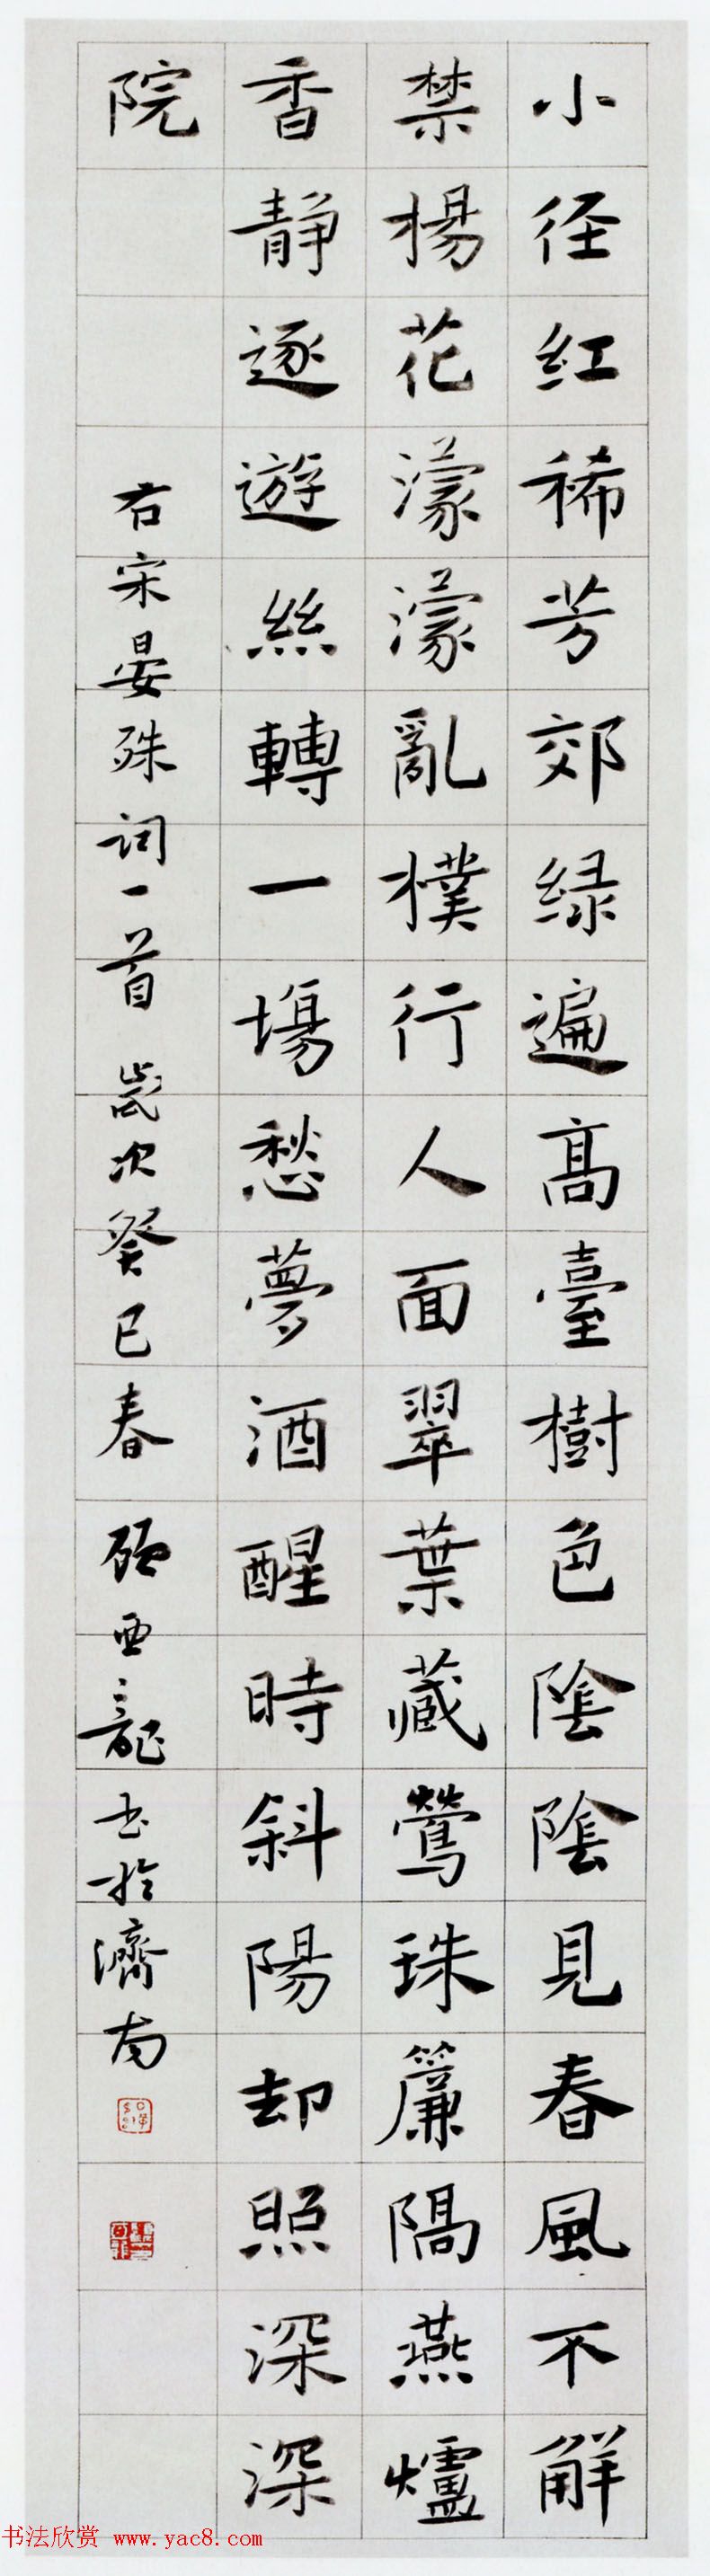 小径红稀芳郊緑遍高臺樹色陰陰見春風不解
禁楊花濛濛亂樸行人面翠葉藏鶯珠簾隔燕爐
香静逐遊絲轉一場愁夢酒醒時斜陽却照深深
院
右宋晏殊词一首 歲次癸巳春 顾亚龍书於濟南
书法欣赏 www.yac8.com